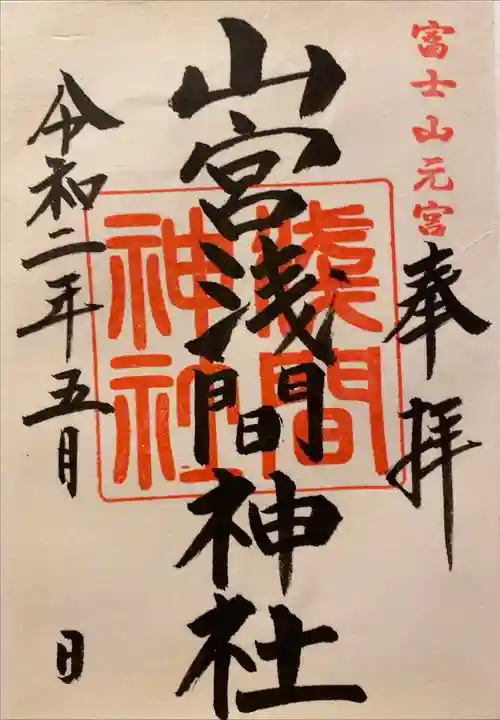 富士山元宮
奉拝
山宮浅間神社
浅間
神社
令和二年五月 日